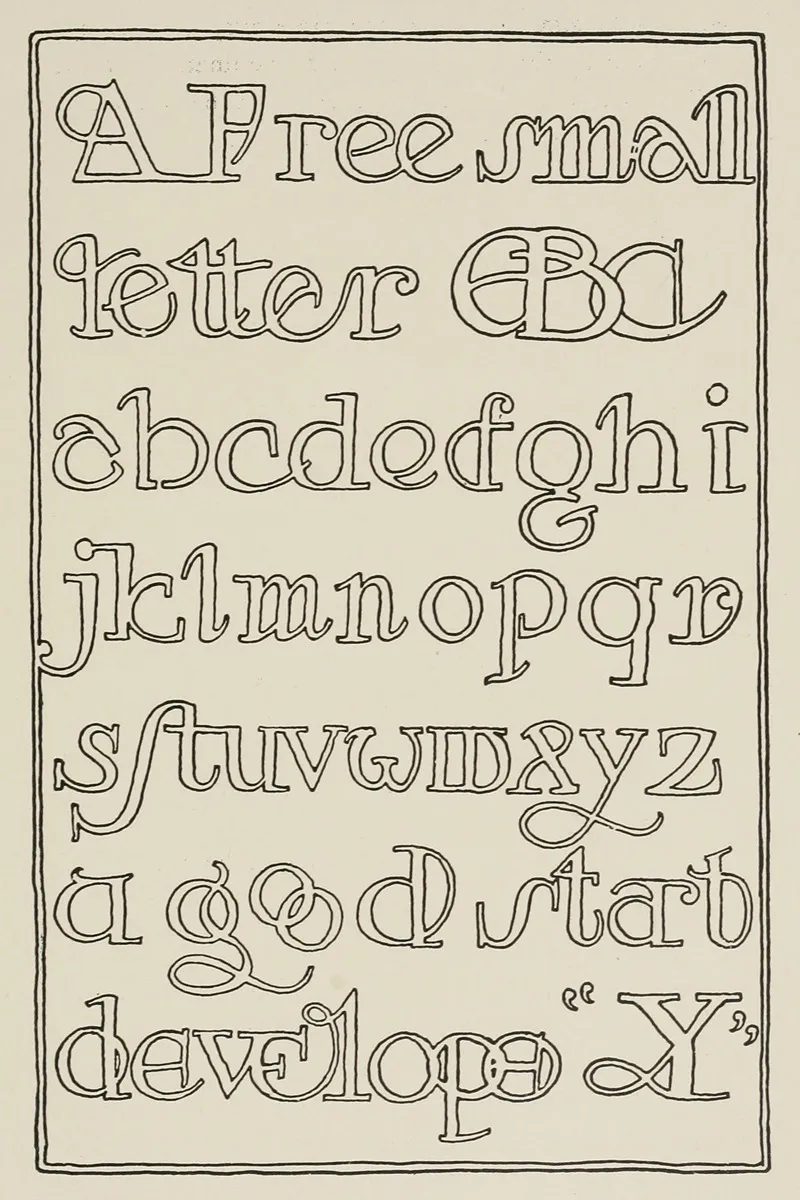 A Free small
letter
abcdefghi
jklmnopqr
sstuvwwxyz
a good start
develope “Y”